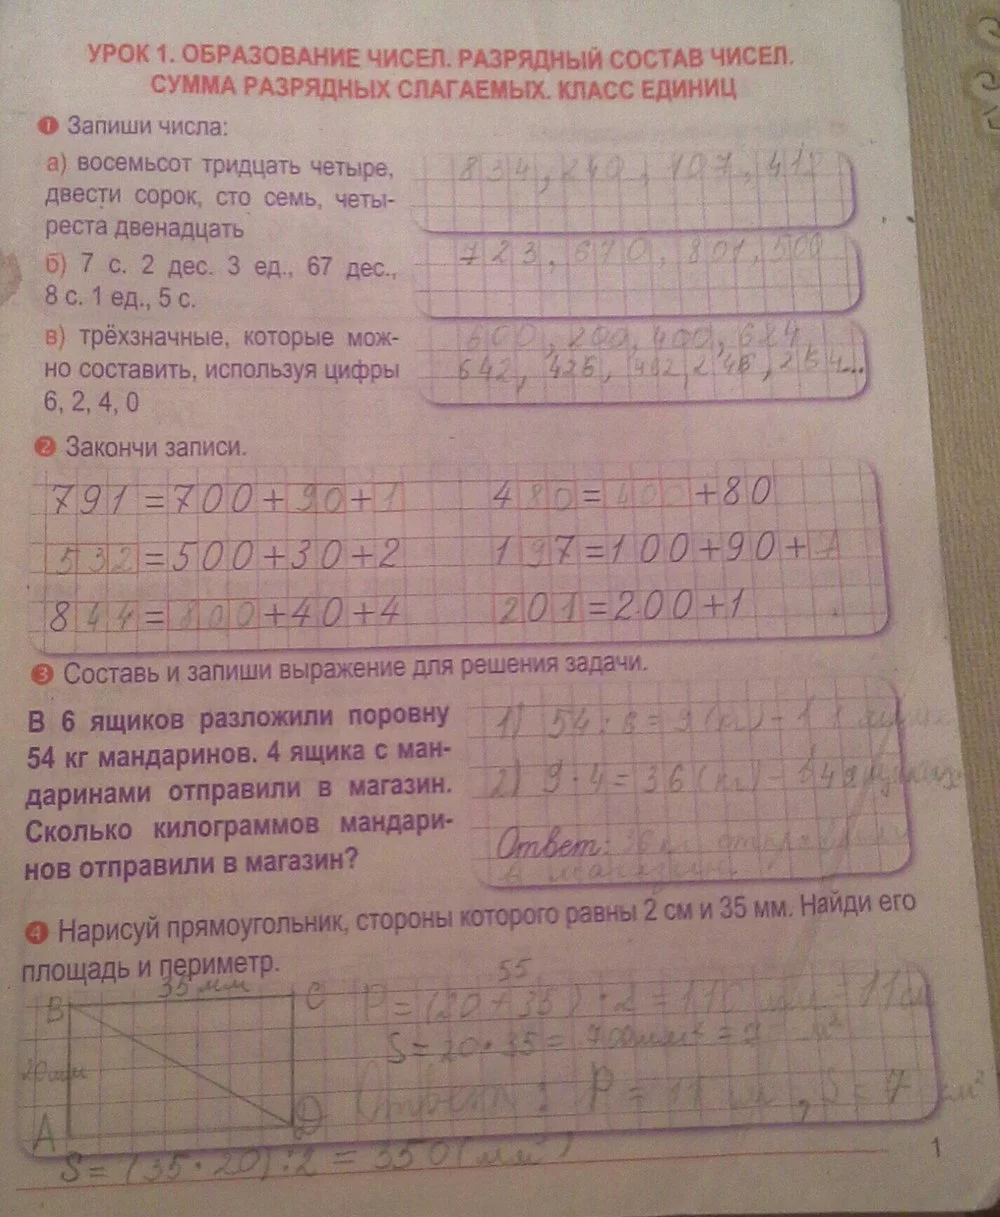 УРОК 1. ОБРАЗОВАНИЕ ЧИСЕЛ. РАЗРЯДНЫЙ СОСТАВ ЧИСЕЛ.
СУММА РАЗРЯДНЫХ СЛАГАЕМЫХ. КЛАСС ЕДИНИЦ
1 Запиши числа:
а) восемьсот тридцать четыре,
двести сорок, сто семь, четы-
реста двенадцать
834, 240, 107, 412
б) 7 с. 2 дес. 3 ед., 67 дес.,
8 с. 1 ед., 5 с.
723, 670, 801, 500
в) трёхзначные, которые мож-
но составить, используя цифры
6, 2, 4, 0
600, 200, 400, 624,
642, 426, 462, 246, 264...
2 Закончи записи.
791=700+90+1 480=400+80
532=500+30+2 197=100+90+7
844=800+40+4 201=200+1
3 Составь и запиши выражение для решения задачи.
В 6 ящиков разложили поровну
54 кг мандаринов. 4 ящика с ман-
даринами отправили в магазин.
Сколько килограммов мандари-
нов отправили в магазин?
1) 54:6=9(кг)-
2) 9·4=36(кг)-
Ответ: 36 кг отправили
в магазин
4 Нарисуй прямоугольник, стороны которого равны 2 см и 35 мм. Найди его
площадь и периметр.
35 мм 55
B C P=(20+35)·2=110 мм=11см
S=20·35=700мм²=7 м²
20мм
Ответ: P=11 см, S=7 см²
A D
S=(35·20):2=350(мм²)
1